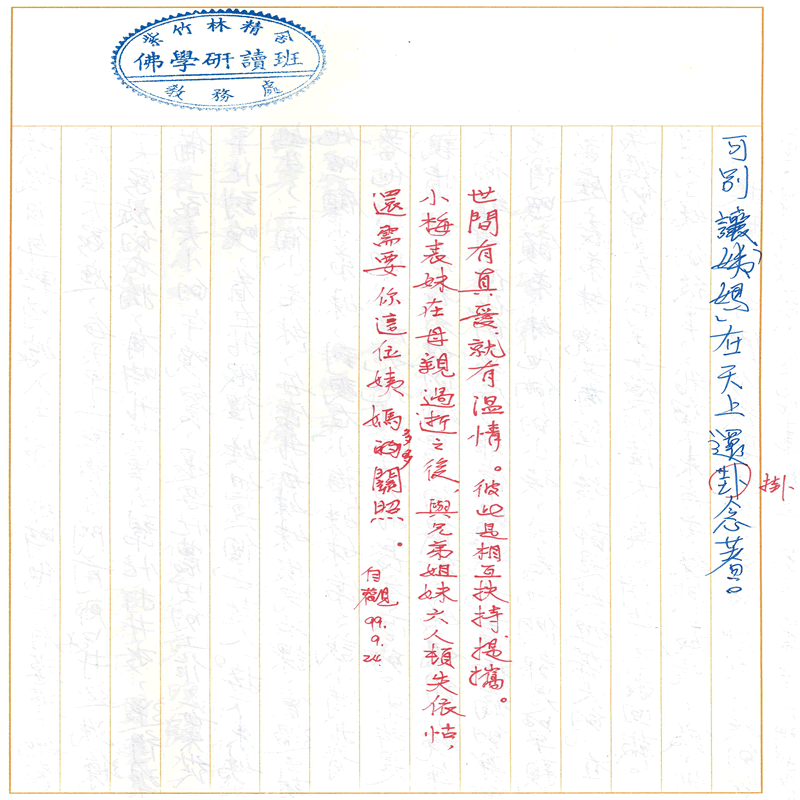 紫竹林精舍
佛學研讀班
教務處
可別讓「姨媽」在天上還卦念著。
掛
世間有真愛就有溫情。彼此是相互扶持提攜。
小梅表妹在母親過逝之後，與兄弟姐妹六人頓失依怙，
還需要你這位姨媽多多關照。
自觀
99.9.24.